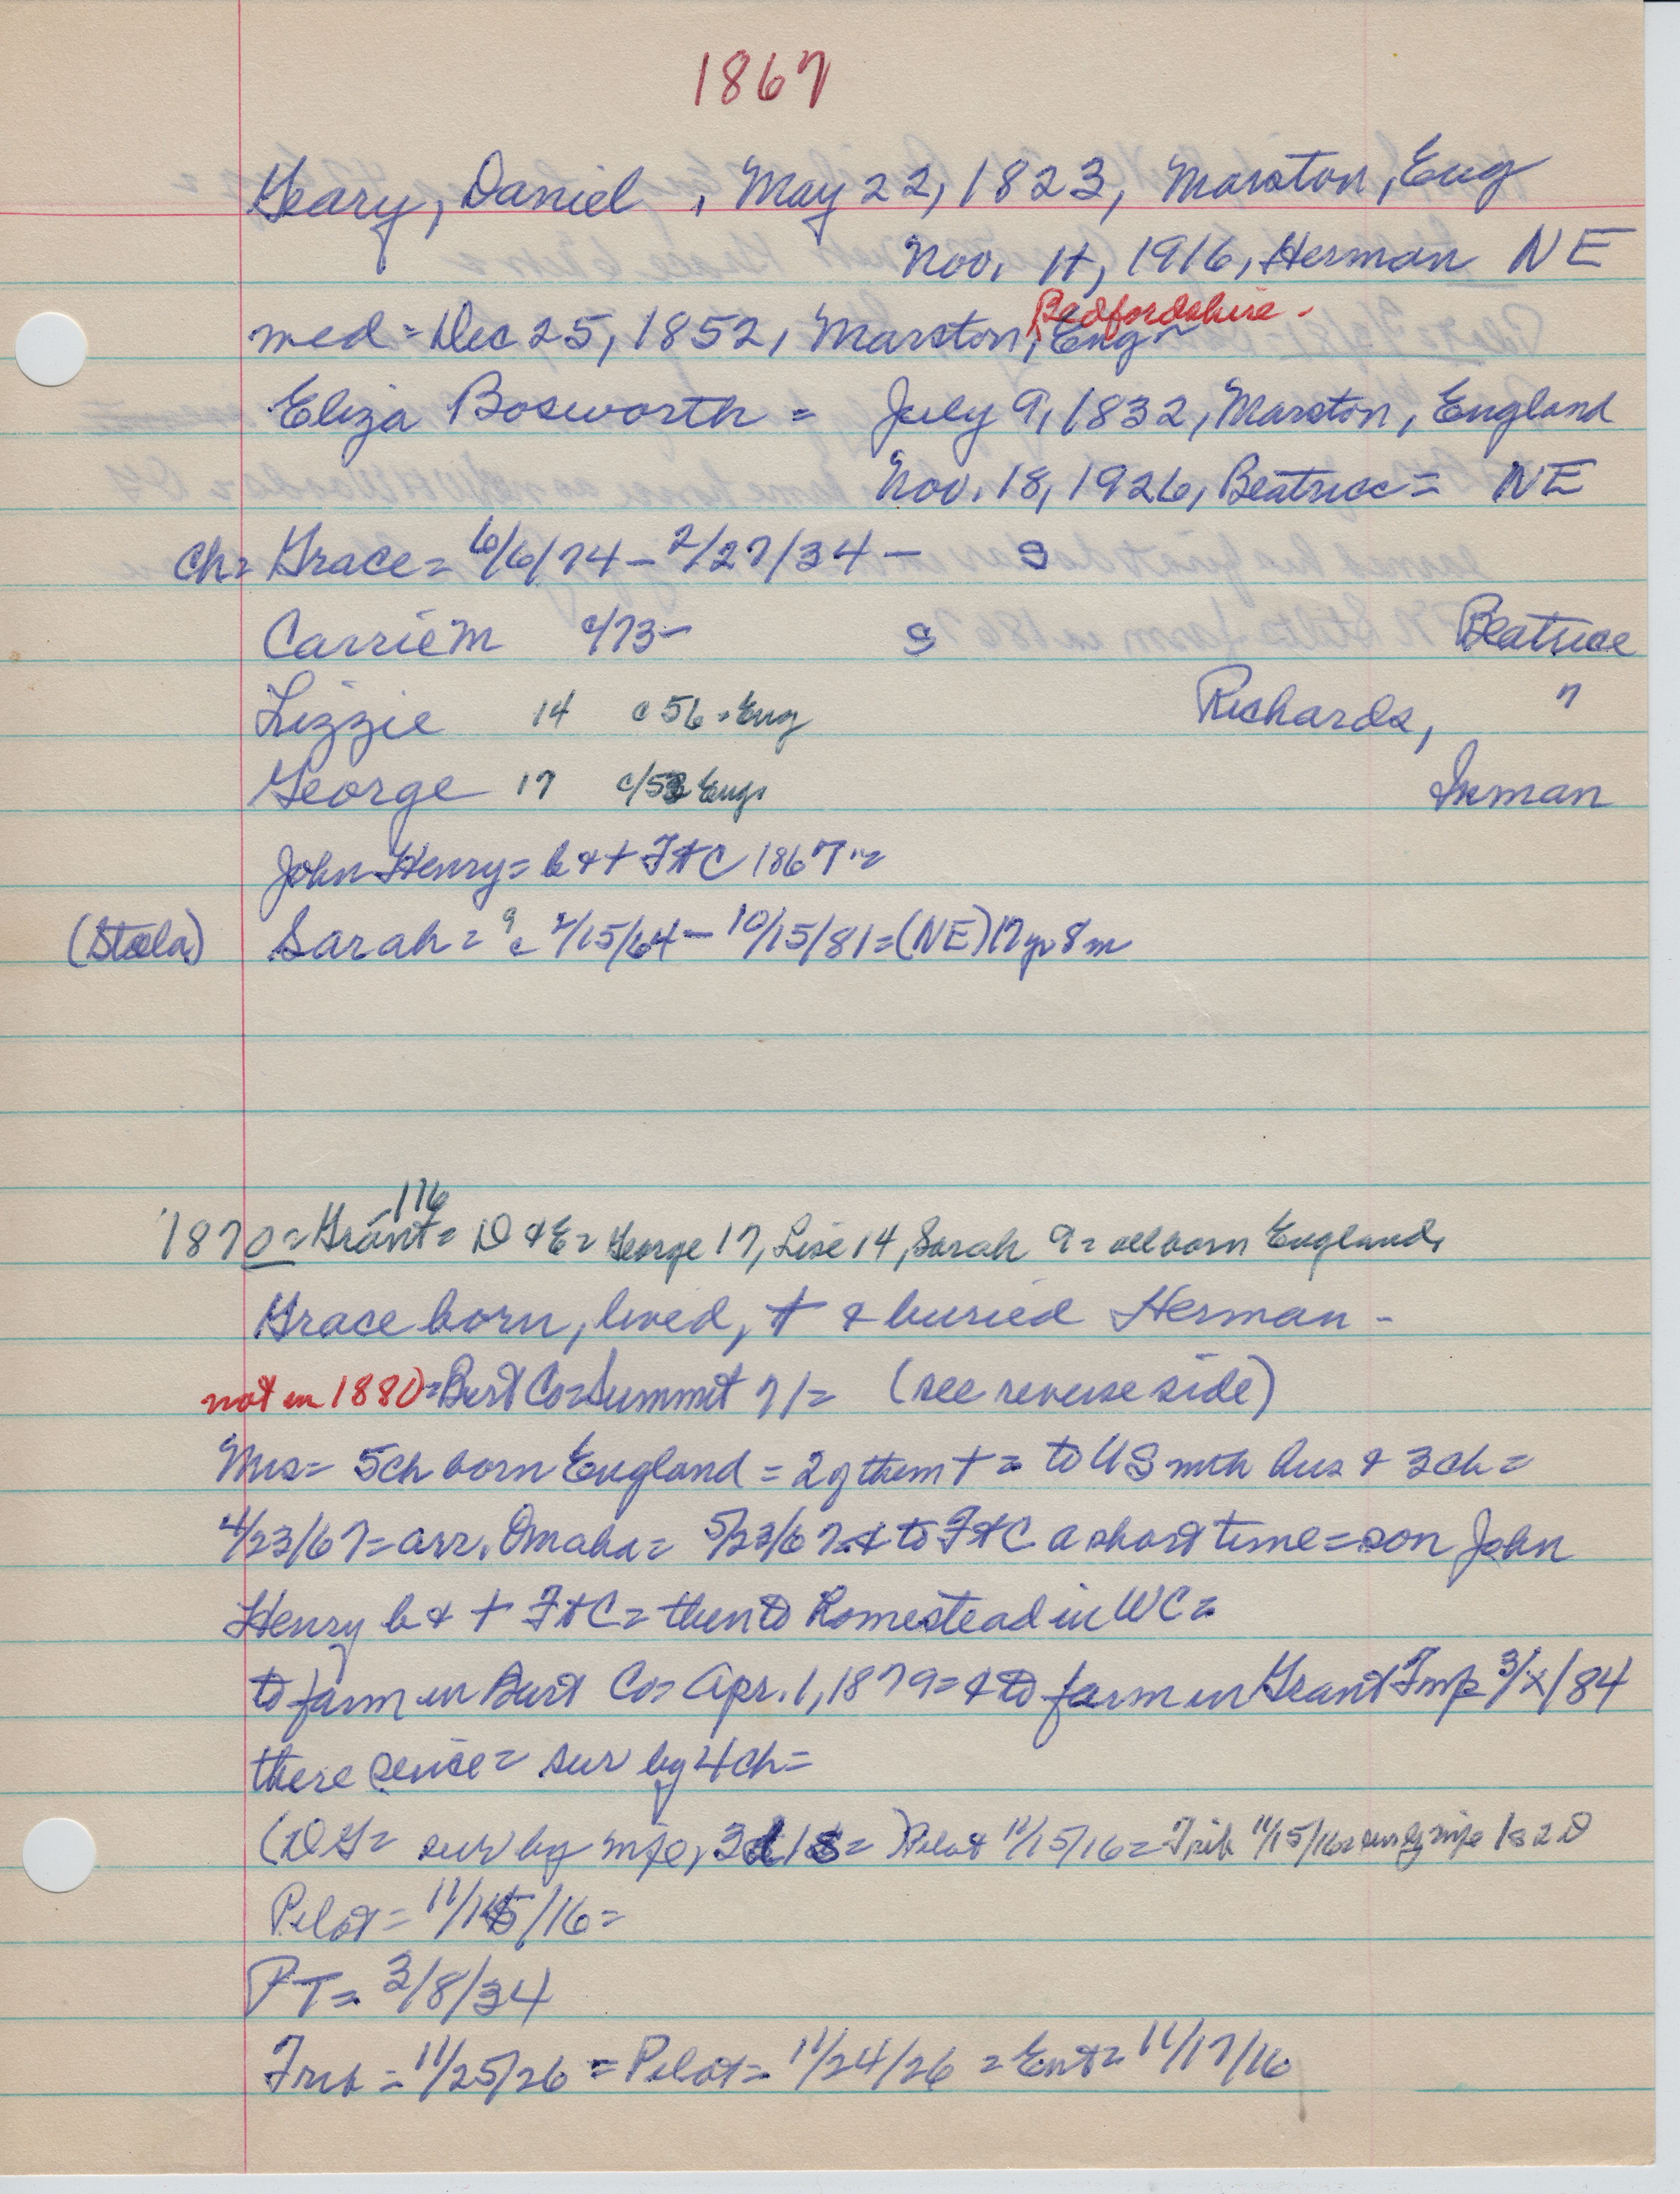 1867
Geary, Daniel , May 22, 1823, Marston, Eng
Nov. 11, 1916, Herman NE
Bedfordshire -
med = Dec 25, 1852, Marston, Eng
Eliza Bosworth = July 9, 1832, Marston, England
Nov. 18, 1926, Beatrice = NE
Ch = Grace = 6/6/74 - 2/27/34 - S
Carrie M c/73 - S Beatrice
Lizzie 14 c 56 = Eng Richards, "
George 17 c/53 Eng. Inman
John Henry = b & + Ft C 1867 =
(Stella) Sarah = 9 c 2/15/64 - 10/15/81 = (NE) 17 yr 8 m
116
1870 = Grant = D & E = George 17, Lise 14, Sarah 9 = all born England,
Grace born, lived, + & buried Herman -
not in 1880 = Burt Co = Summit 71 = (see reverse side)
Mrs = 5 ch born England = 2 of them + = to US with hus & 3 ch =
4/23/67 = arr. Omaha = 5/23/67 = & to Ft C a short time = son John
Henry b & + Ft C = then to homestead in WC =
to farm in Burt Co = Apr. 1, 1879 = & to farm in Grant Twp 3/x/84
there since = sur by 4 ch =
(DG = sur by wife, 3d 1s = ) Pilot 11/15/16 = Trib 11/15/16 = sur by wife 1s 2D
Pilot = 11/15/16 =
PT = 3/8/34
Trib = 11/25/26 = Pilot = 11/24/26 = Ent = 11/17/16